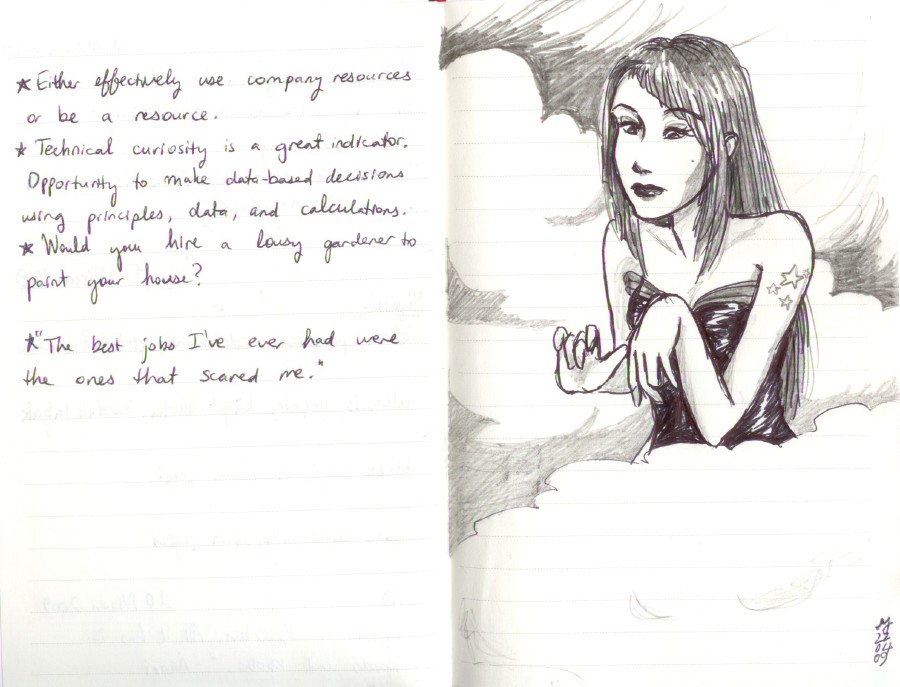 ★ Either effectively use company resources
or be a resource.
★ Technical curiosity is a great indicator.
Opportunity to make data-based decisions
using principles, data, and calculations.
★ Would you hire a lousy gardener to
paint your house?
★ "The best jobs I've ever had were
the ones that scared me."
29
04
09